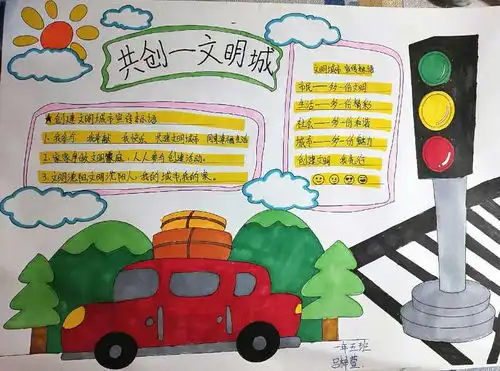 共创一文明城
★创建文明城市宣传标语
1.我参与 我奉献 我快乐 共建文明城市 同享幸福生活
2.家家争做文明家庭,人人参与创建活动。
3.文明沈阳文明沈阳人,我的城市我的家。
文明城市 宣传标语
市民——多一份文明
生活——多一份精彩
社会——多一份和谐
城市——多一份魅力
创建文明 我先行
一年五班